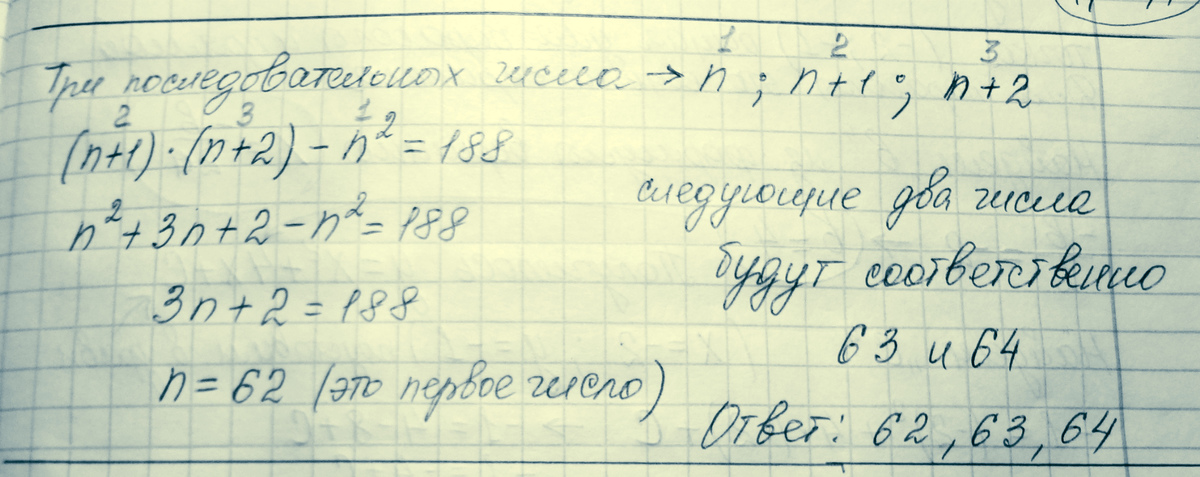 1 2 3
Три последовательных числа → n ; n+1 ; n+2
2 3 1
(n+1)·(n+2) − n² = 188
n² + 3n + 2 − n² = 188
3n + 2 = 188
n = 62 (это первое число)
следующие два числа
будут соответственно
63 и 64
Ответ: 62, 63, 64